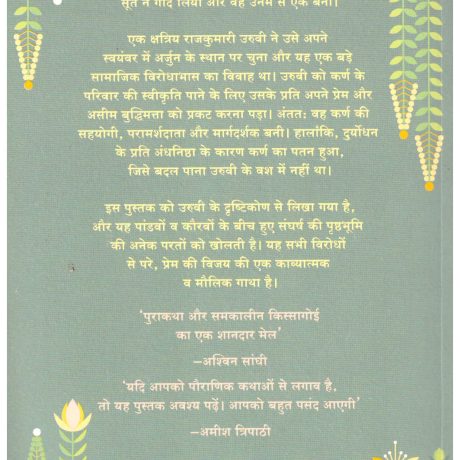 सूत ने गोद लिया और वह उनमें से एक बना।
एक क्षत्रिय राजकुमारी उरुवी ने उसे अपने
स्वयंवर में अर्जुन के स्थान पर चुना और यह एक बड़े
सामाजिक विरोधाभास का विवाह था। उरुवी को कर्ण के
परिवार की स्वीकृति पाने के लिए उसके प्रति अपने प्रेम और
असीम बुद्धिमत्ता को प्रकट करना पड़ा। अंततः वह कर्ण की
सहयोगी, परामर्शदाता और मार्गदर्शक बनी। हालांकि, दुर्योधन
के प्रति अंधनिष्ठा के कारण कर्ण का पतन हुआ,
जिसे बदल पाना उरुवी के वश में नहीं था।
इस पुस्तक को उरुवी के दृष्टिकोण से लिखा गया है,
और यह पांडवों व कौरवों के बीच हुए संघर्ष की पृष्ठभूमि
की अनेक परतों को खोलती है। यह सभी विरोधों
से परे, प्रेम की विजय की एक काव्यात्मक
व मौलिक गाथा है।
‘पुराकथा और समकालीन किस्सागोई
का एक शानदार मेल’
—अश्विन सांघी
‘यदि आपको पौराणिक कथाओं से लगाव है,
तो यह पुस्तक अवश्य पढ़ें। आपको बहुत पसंद आएगी’
—अमीश त्रिपाठी